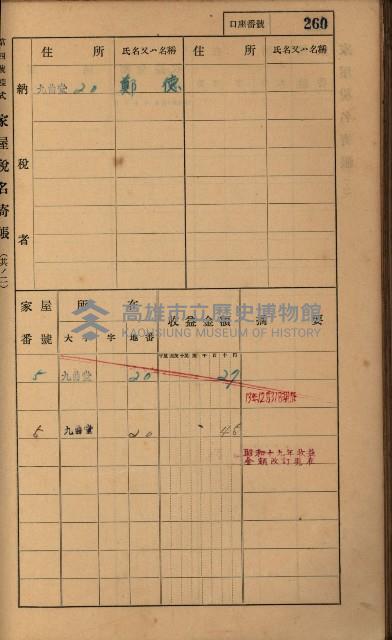 口座番號 260
第四號樣式 家屋稅名寄帳 (共ノ二)
納稅者
住所 氏名又ハ名稱 住所 氏名又ハ名稱
九曲堂 20 鄭德
家屋番號 所在 收益金額 摘要
大字 字 地番
5 九曲堂 20 27
5 九曲堂 20 46
昭和十九年收益
金額改訂現在
高雄市立歷史博物館
KAOHSIUNG MUSEUM OF HISTORY